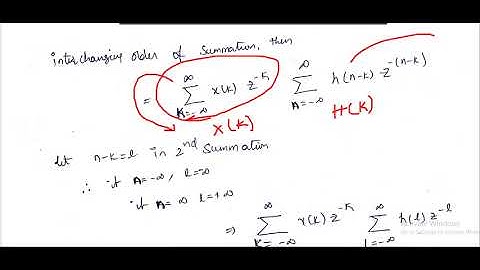 interchanging order of Summation, then
= ∞ Σ K=-∞ x(k) z^-k ∞ Σ n=-∞ h(n-k) z^-(n-k)
X(K) H(K)
let n-k=l in 2nd Summation
∴ if n=-∞, l=-∞
if n=∞ l=+∞
⇒ ∞ Σ K=-∞ x(k) z^-k ∞ Σ l=-∞ h(l) z^-l